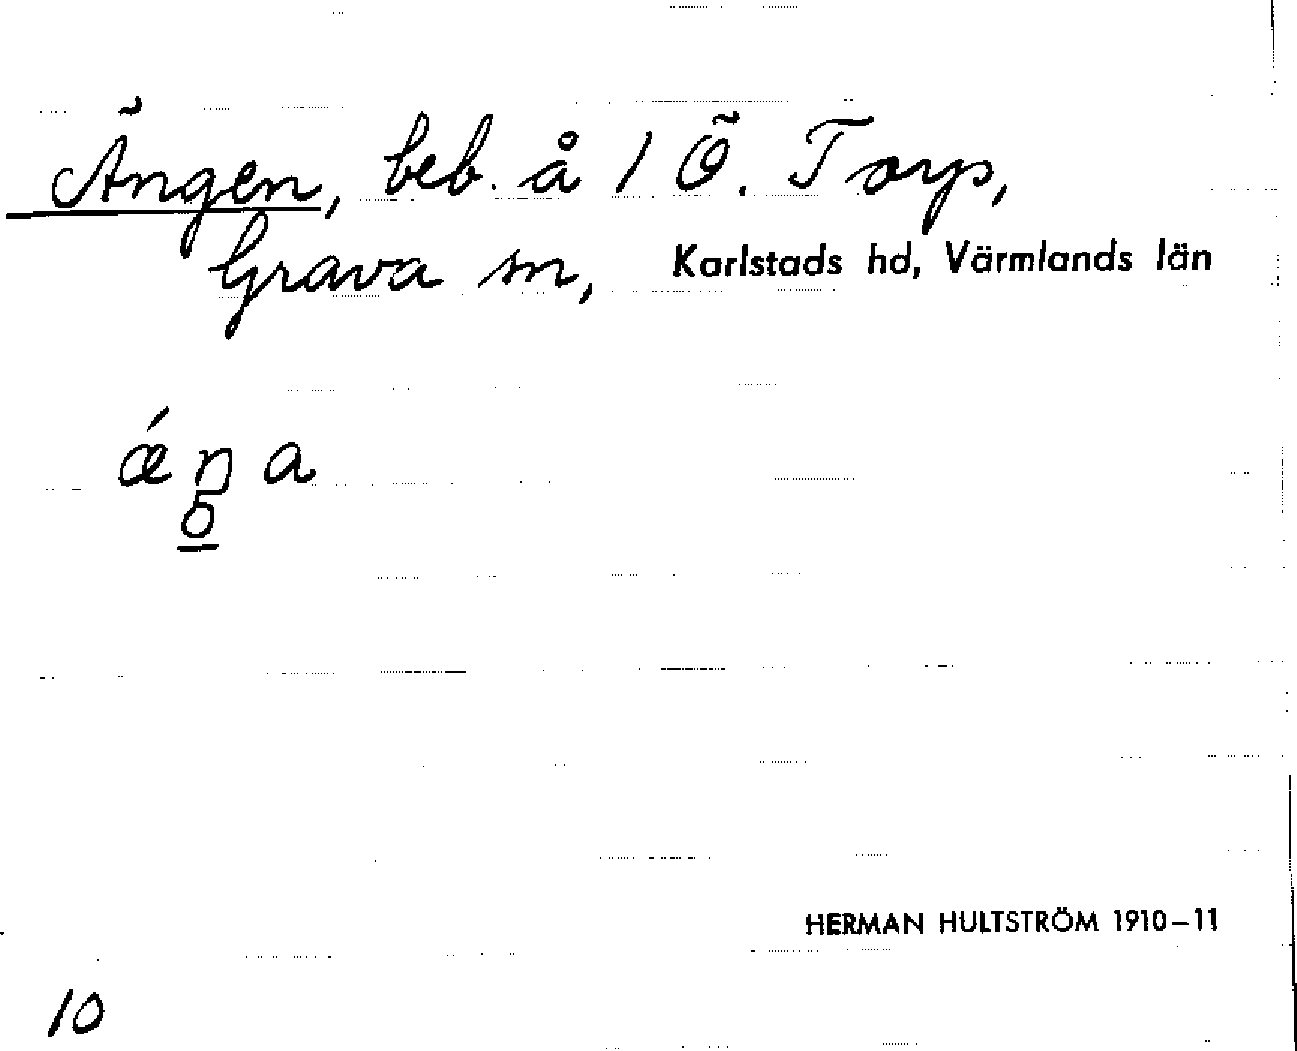 Ängen, beb. å 1 Ö. Torp,
Grava sn, Karlstads hd, Värmlands län
ǽŋa
HERMAN HULTSTRÖM 1910–11
10